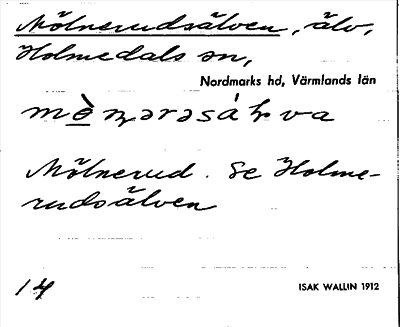 Mölnerudsälven, älv,
Holmedals sn,
Nordmarks hd, Värmlands län
Mölnerud. Se Holme-
rudsälven
14
ISAK WALLIN 1912